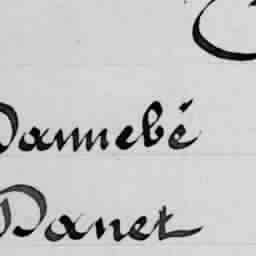 Dannebé
Danet